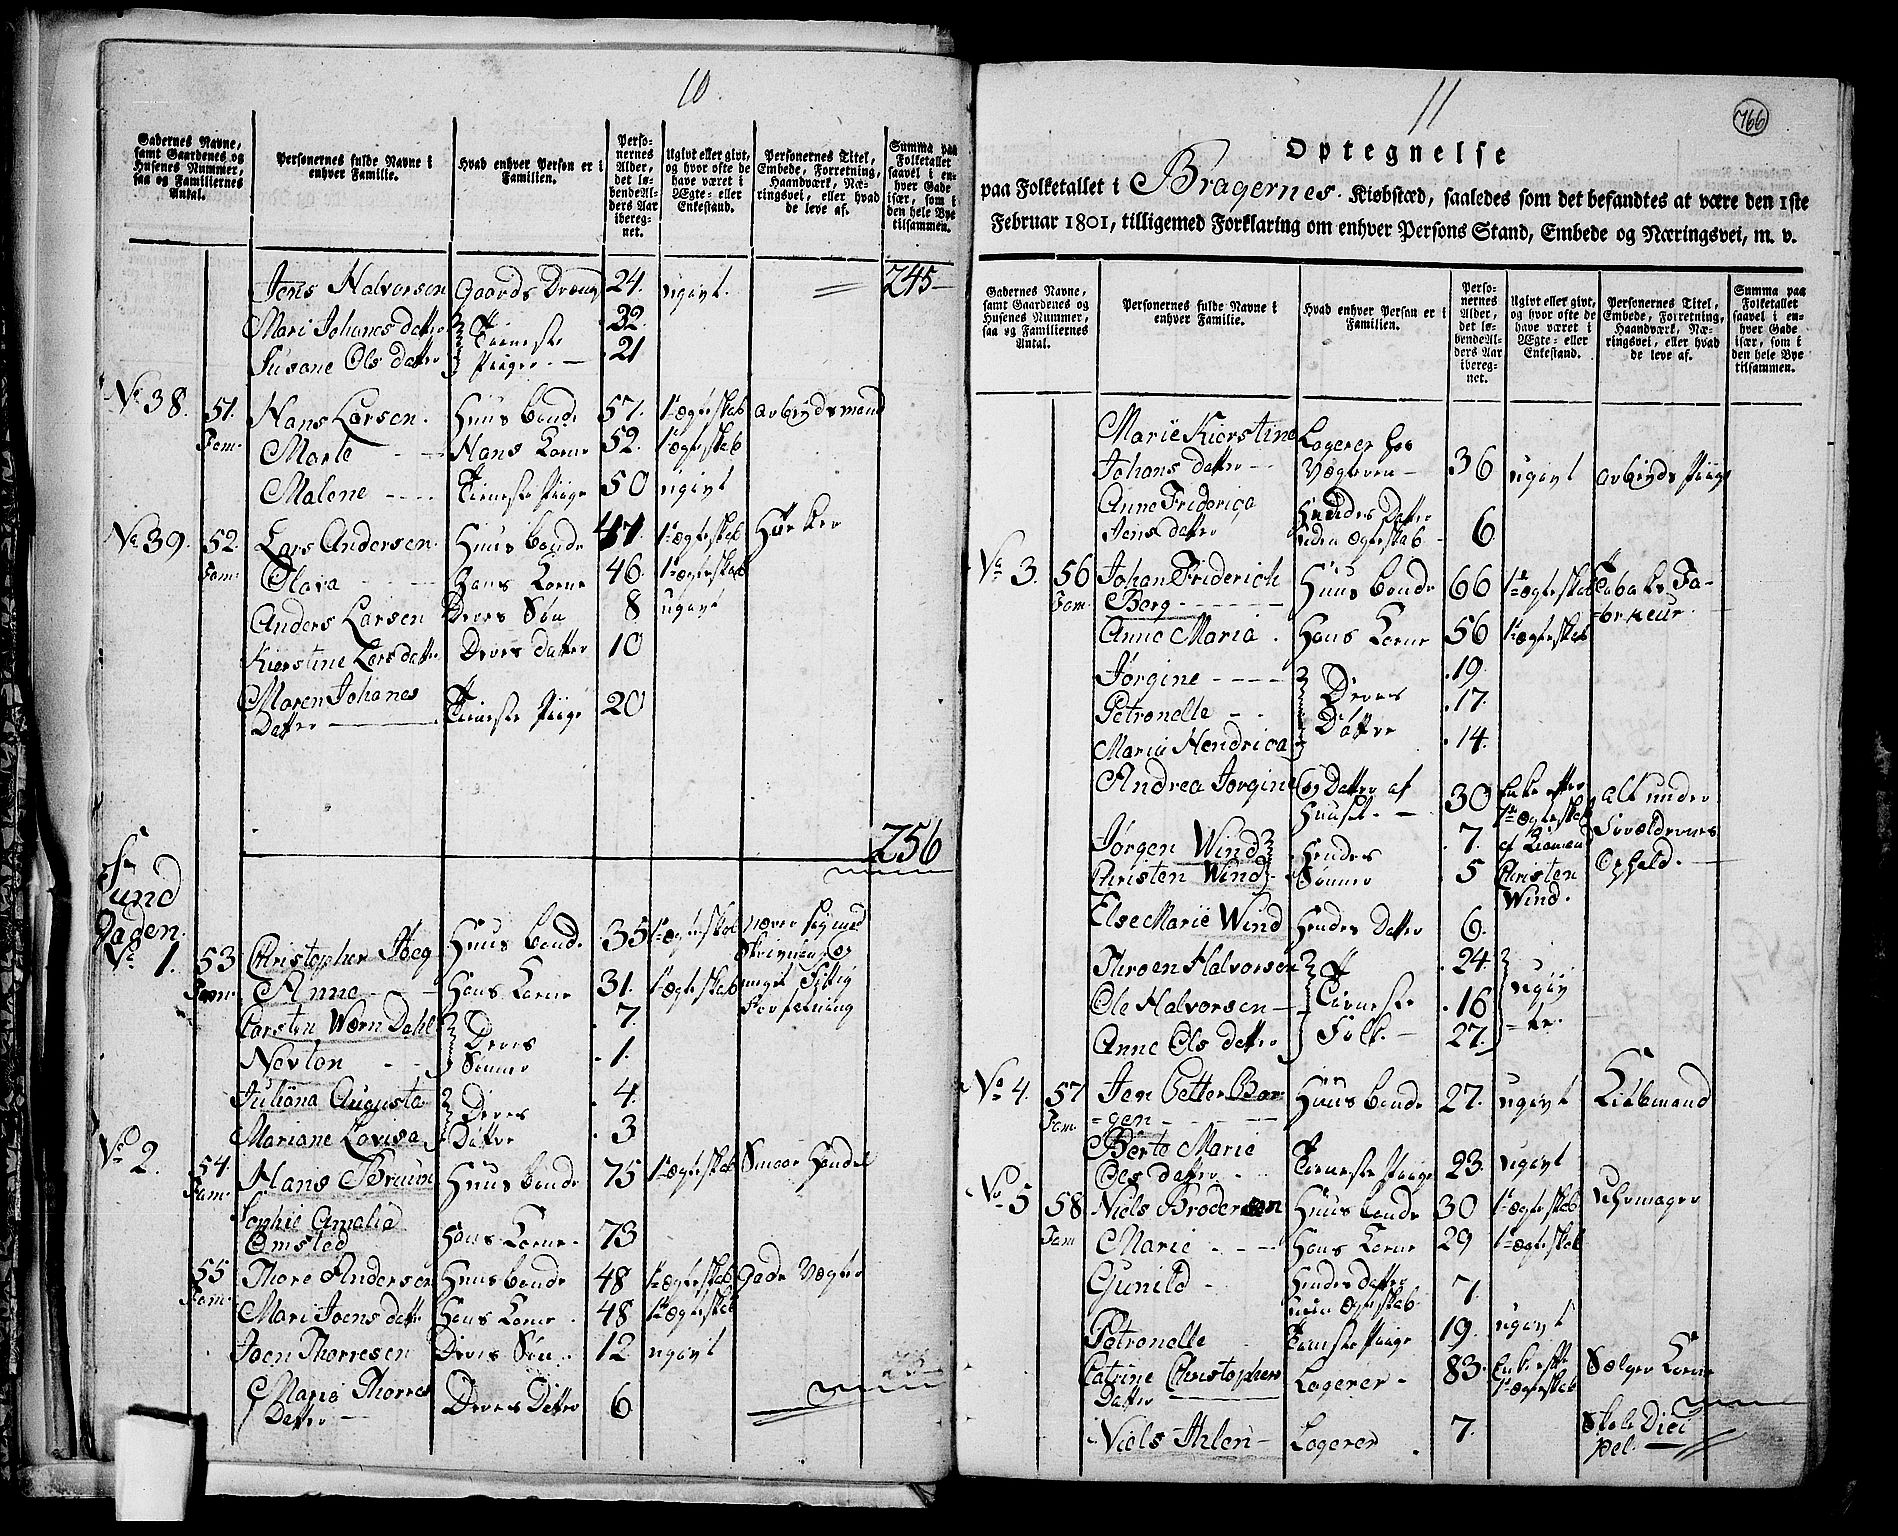 10.
Gadernes Navne,
samt Gaardenes og
Husenes Nummer,
saa og Familiernes
Antal.
Personernes fulde Navne i
enhver Familie.
Hvad enhver Person er i
Familien.
Perso-
nernes
Alder,
det lø-
bende Al-
ders Aar
ibereg-
net.
Ugivt eller givt,
og hvor ofte de
have været i
Ægte- eller
Enkestand.
Personernes Titel,
Embede, Forretning,
Haandværk, Næ-
ringsvei, eller hvad
de leve af.
Summa paa
Folketallet
saavel i en-
hver Gade
især, som i
den hele Bye
tilsammen.
Jens Halvorsen Gaards Dreng 24. ugivt. 245
Mari Johanes datter Tieneste 22.
Susane Ols datter Piiger 21
No 38. 51. Fam. Hans Larsen. Huus bonde 57. 1te ægteskab arbeydsmand
Marte Hans Kone 52. 1te ægteskab
Malene Tieneste Piige 50 ugivt
No 39. 52. Fam. Lars Andersen. Huus bonde 47. 1te ægteskab Hørker
Olava Hans Kone 46. 1te ægteskab
Anders Larsen Deres Søn 8 ugivt
Kierstine Lars datter Deres datter 10
Maren Johanes
Datter Tieneste Piige 20
256
Sund
Gaden.
No 1. 53 Fam. Christopher Hoeg Huus bonde 35 1te ægteskab nærer sig med
Skrivning og
Anne Hans Kone 31. 1te ægteskab noget Sittig
Forfatning
Carsten Wærn Dahl Deres 7.
Nevton Sønner 1.
Juliana Augusta Deres 4.
Mariane Lovisa Døttre 3
No 2. 54. Fam. Hans Bruun Huus bonde 75 1te ægteskab Smaae Handel
Sophie Amalia
Omsted Hans Kone 73
55 Fam. Thore Andersen Huusbonde 48 1te ægteskab Gade Vægter
Mari Joens datter Hans Kone 48 1te ægteskab
Joen Thorresen Deres Søn 12 ugivt
Marie Thorres
Datter Deres Datter 6
11
766
Optegnelse
paa Folketallet i Bragernes. Kiøbstæd, saaledes som det befandtes at være den 1ste
Februar 1801, tilligemed Forklaring om enhver Persons Stand, Embede og Næringsvei, m. v.
Gadernes Navne,
samt Gaardenes og
Husenes Nummer,
saa og Familiernes
Antal.
Personernes fulde Navne i
enhver Familie.
Hvad enhver Person er i
Familien.
Perso-
nernes
Alder,
det lø-
bende Al-
ders Aar
ibereg-
net.
Ugivt eller givt,
og hvor ofte de
have været i
Ægte- eller
Enkestand.
Personernes Titel,
Embede, Forretning,
Haandværk, Næ-
ringsvei, eller hvad
de leve af.
Summa paa
Folketallet
saavel i en-
hver Gade
især, som i
den hele Bye
tilsammen.
Marie Kierstine Logerer hos
Johans datter Vægteren 36 ugivt arbeyds Piige
Anne Friderica Hendes Datter
Jens datter uden ægteskab 6
No 3. 56 Fam. Johan Friderich Huus bonde 66 1te ægteskab Tobaks Fa-
Berg brikeur.
Anne Maria Hans Kone 56 1te ægteskab
Jørgine Deres 19.
Petronelle Døttre 17.
Maria Hendrica 14.
Andrea Jørgine og Datter af
Huuset. 30 Enke efter
1te ægteskab
af Kiømand
Christen
Wind. alt under
Forældrenes
Ophold.
Jørgen Wind Hendes 7.
Christen Wind Sønner 5
Else Marie Wind Hendes Datter 6.
Throen Halvorsen Tieneste 24. ugiv
Ole Halvorsen Folk. 16 -te.
Anne Ols datter 27.
No 4. 57 Fam. Jen Petter Bor- Huus bonde 27. ugivt
-gen
Berte Marie
Ols datter Tieneste Piige 23. ugivt
No 5 58 Fam Niels Brodersen Huus bonde 30 1te ægteskab Uhrmager
Marie Hans Kone 29 1te ægteskab
Gunild Hendes datter
uden ægteskab 7.
Petronelle Tieneste Piige 19. ugivt
Catrine Christophers
Datter Logerer 83. Enke efter
1te ægteskab Sælger Korn
Niels Ihlen Logerer 7. Skole Disi
pel.